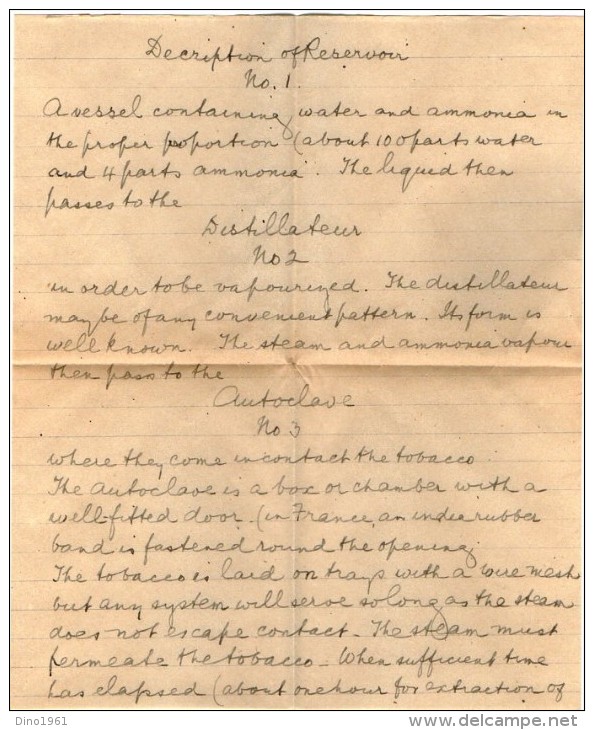 Decription of Reservoir
No. 1.
A vessel containing water and ammonia in
the proper proportion (about 100 parts water
and 4 parts ammonia. The liquid then
passes to the
Distillateur
No 2
in order to be vapourized. The distillateur
may be of any convenient pattern. Its form is
well known. The steam and ammonia vapour
then pass to the
Autoclave
No 3
where they come in contact the tobacco
The autoclave is a box or chamber with a
well-fitted door. (in France, an india rubber
band is fastened round the opening
The tobacco is laid on trays with a wire mesh
but any system will serve so long as the steam
does not escape contact. The steam must
permeate the tobacco. When sufficient time
has elapsed (about one hour for extraction of
Dino1961
delcampe.net